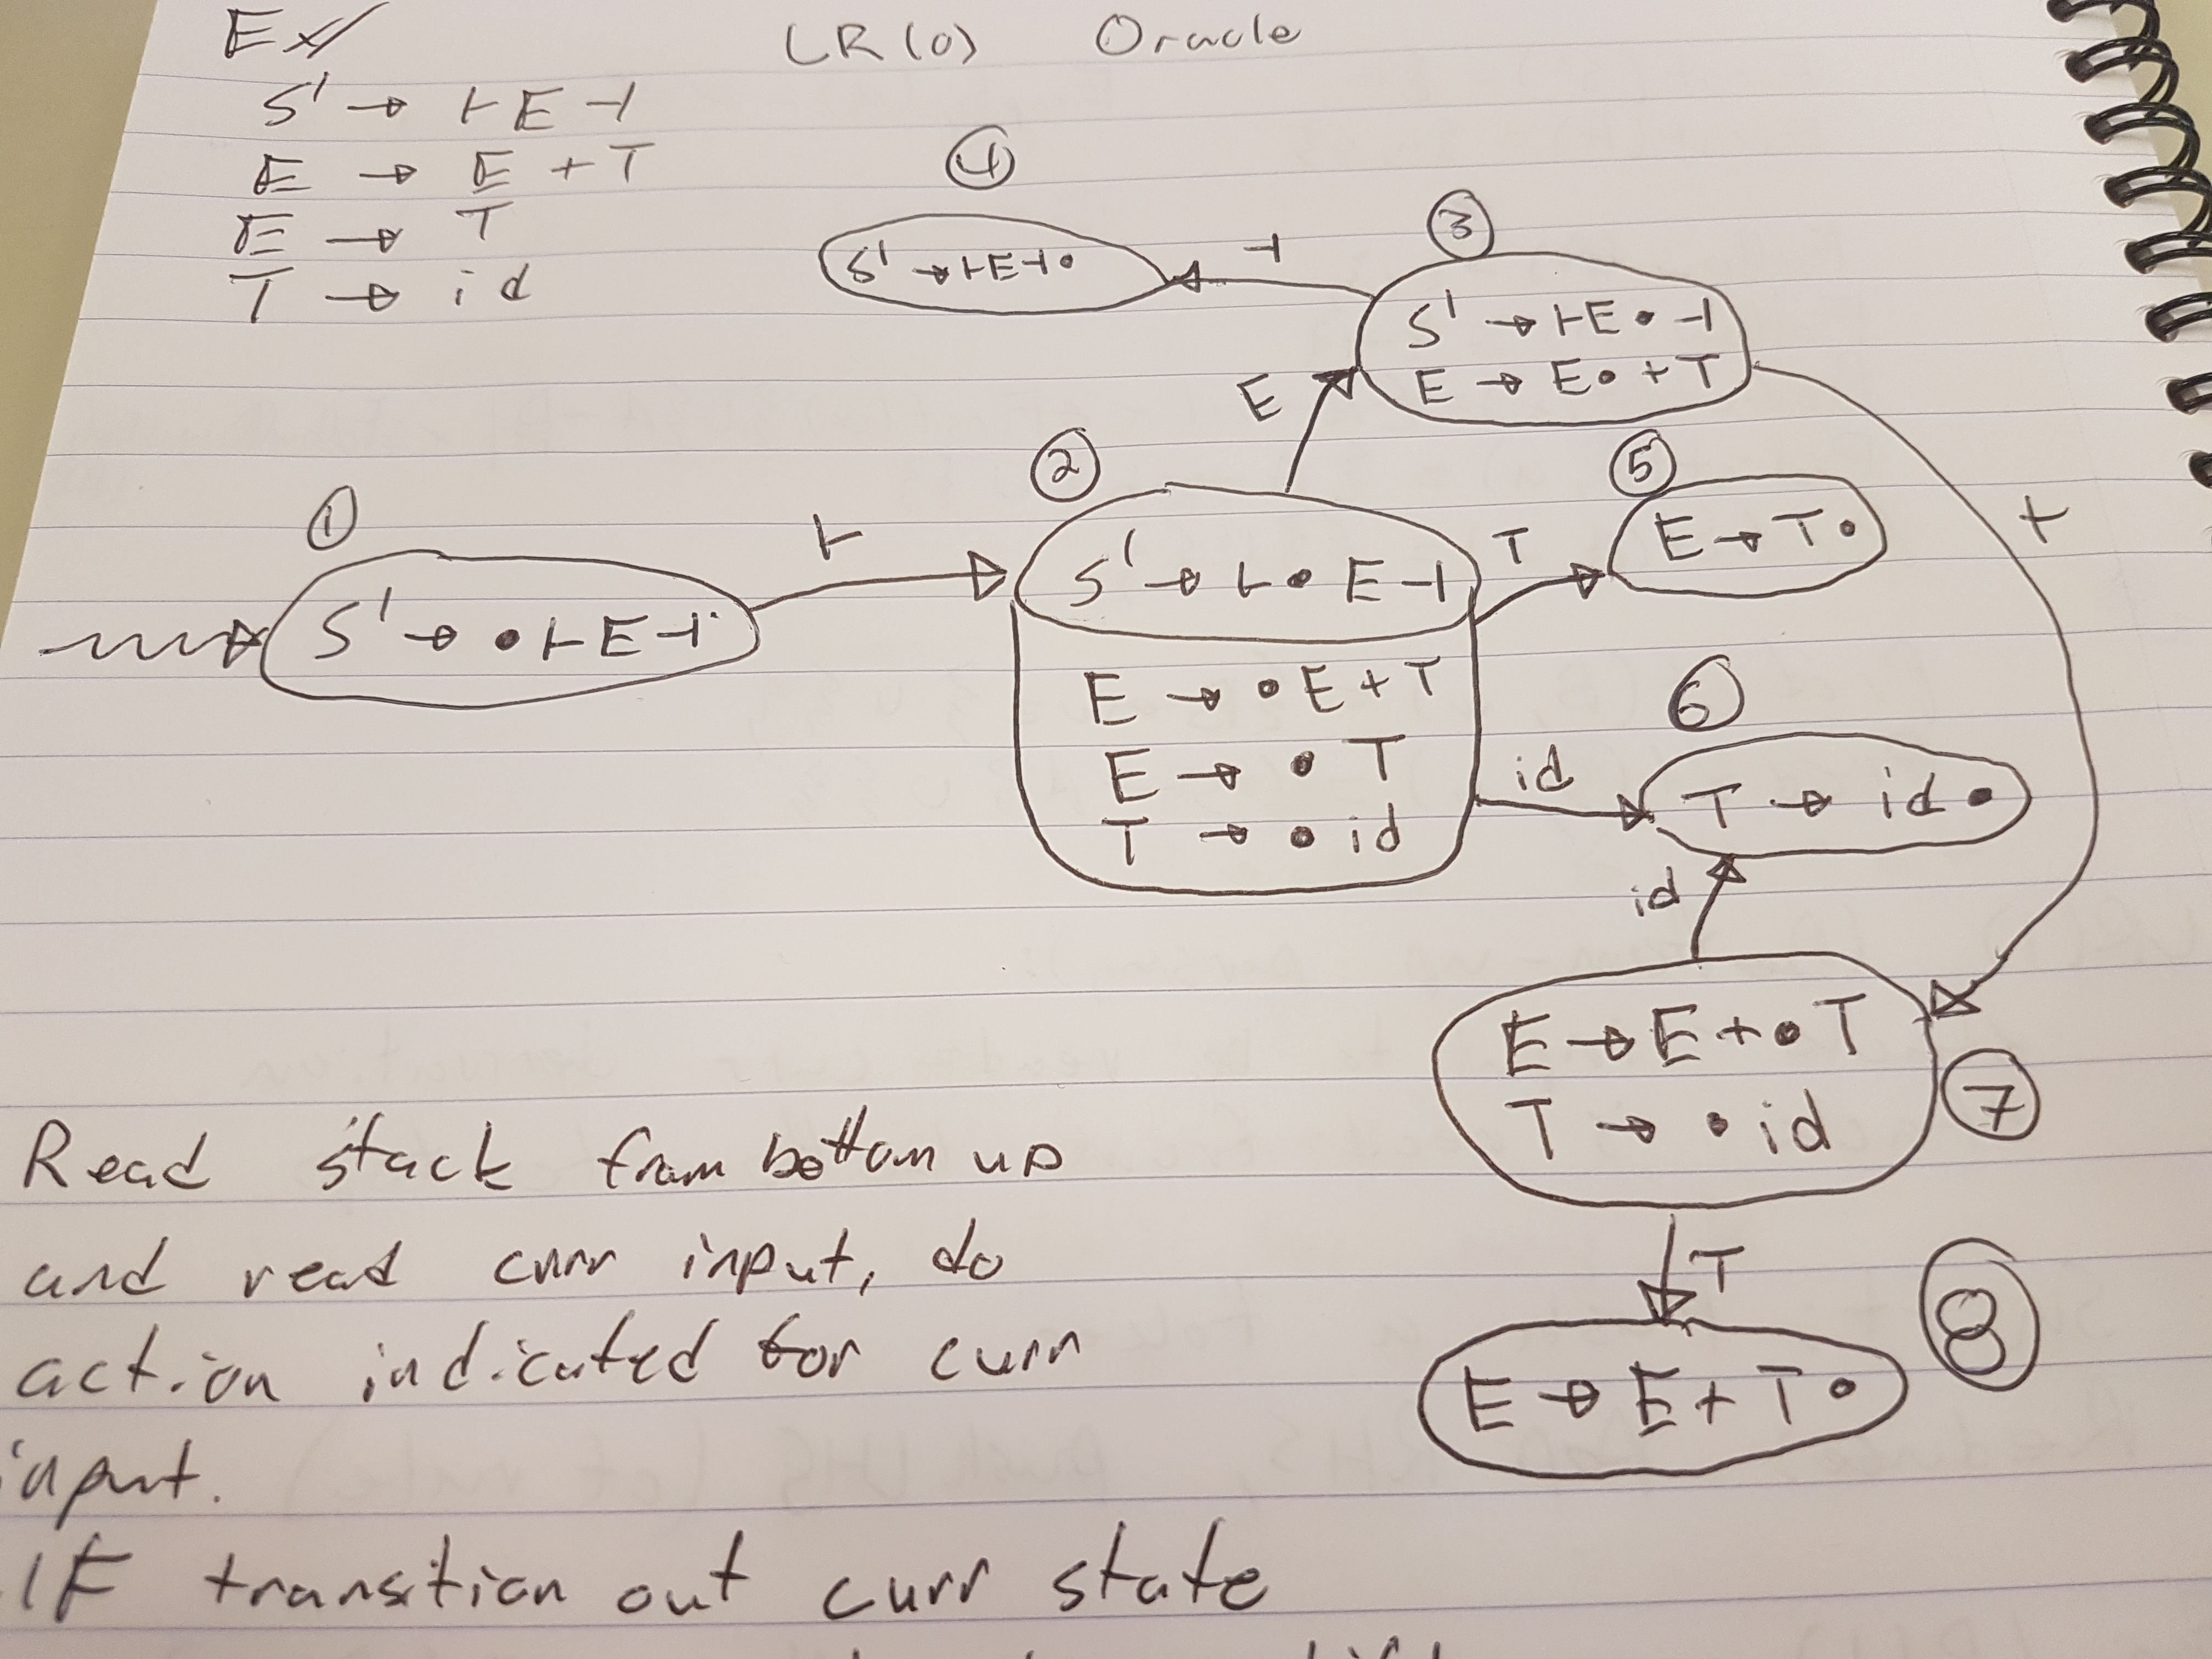 Ex
LR(0) Oracle
S' → ⊢ E ⊣
E → E + T
E → T
T → id
④
S' → ⊢E⊣•
⊣
③
S' → ⊢E • ⊣
E → E• + T
E
+
②
S' → ⊢ • E ⊣
E → • E + T
E → • T
T → • id
T
⑤
E → T •
①
S' → • ⊢ E ⊣
⊢
id
⑥
T → id •
id
E → E + • T
T → • id
⑦
T
⑧
E → E + T •
Read stack from bottom up
and read curr input, do
action indicated for curr
input.
IF transition out curr state